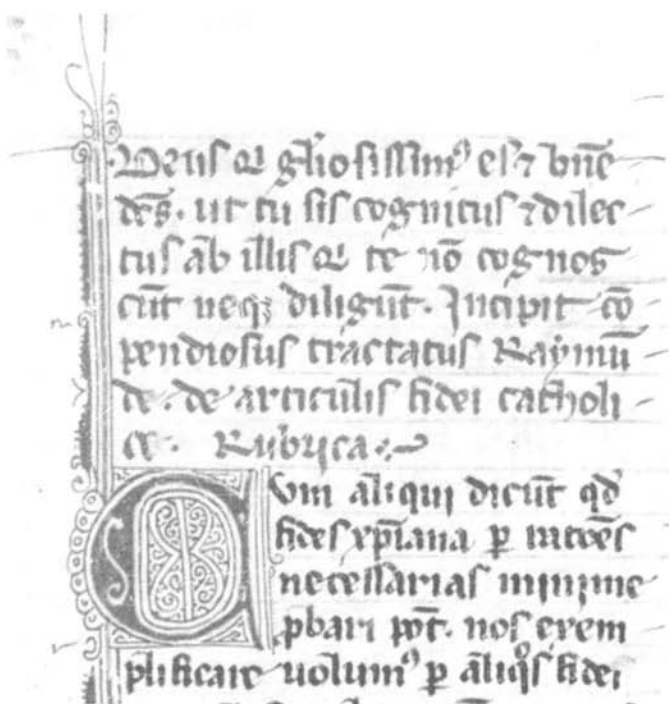 Deus qi gl'iosissim9 es ⁊ bn̄e
dc̄s. ut tu sis cognitus ⁊ dilec
tus ab illis qi te nō cognos
cūt neqꝫ diligūt. Incipit cō
pendiosus tractatus Raymū
de. de articulis fidei catholi
ce. Rubrica.
Cum aliqui dicūt qd̄
fides xp̄iana ꝑ rac̄ōes
necessarias minime
ꝓbari pōt. nos exem
plificare uolum9 ꝑ aliqos fidei